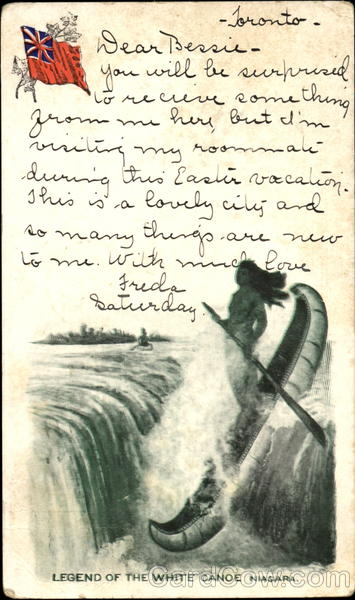 -Toronto-
Dear Bessie-
You will be surprised
to recieve something
from me her, but I'm
visiting my roommate
during this Easter vacation.
This is a lovely city and
so many things are new
to me. With much love
Freda
Saturday.
LEGEND OF THE WHITE CANOE NIAGARA
CardCow.com